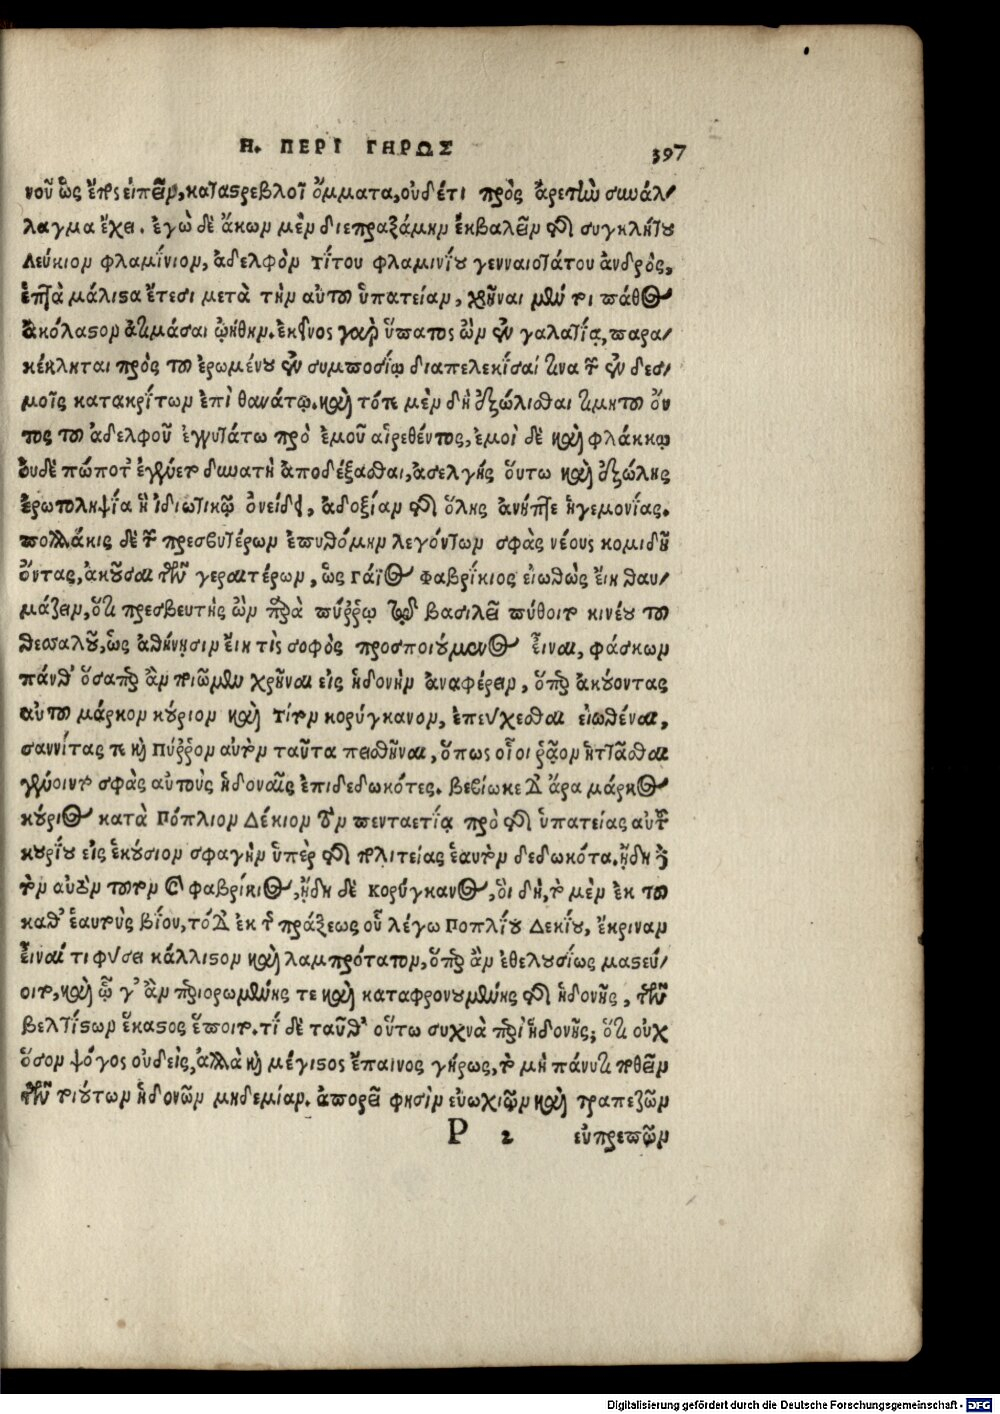 Η. ΠΕΡΙ ΓΗΡΩΣ
397
νοῦ ὡς ἔπος εἰπεῖν, καταστρεβλοῖ ὄμματα, οὐδέ τι πρὸς ἀρετὴν συνάλ/
λαγμα ἔχει. ἐγὼ δὲ ἄκων μὲν διεπραξάμην ἐκβαλεῖν τῆς συγκλήτου
Λεύκιον φλαμίνιον, ἀδελφὸν τίτου φλαμινίου γενναιοτάτου ἀνδρὸς,
ἑπτὰ μάλιστα ἔτεσι μετὰ τὴν αὐτοῦ ὑπατείαν, χρῆναι μέν τοι πάθος
ἀκόλαστον ἀτιμάσαι ᾠήθην. ἐκεῖνος γὰρ ὕπατος ὢν ἐν γαλατίᾳ, παρα/
κέκληται πρὸς τοῦ ἐρωμένου ἐν συμποσίῳ διαπελεκίσαί τινα τῶν ἐν δεσ/
μοῖς κατακρίτων ἐπὶ θανάτῳ. καὶ τότε μὲν δὴ ἐξώλισθαι τιμητοῦ ὄν
τος τοῦ ἀδελφοῦ ἐγγυτάτω πρὸ ἐμοῦ αἱρεθέντος, ἐμοὶ δὲ καὶ φλάκκῳ
οὐδὲ πώποτ' ἐγένετο δυνατὴ ἀποδέξασθαι, ἀσελγής οὕτω καὶ ἐξώλης
ἐρωτοληψία ἢ ἰδιωτικῷ ὀνείδει, ἀδοξίαν τῆς ὅλης ἀνῆπτε ἡγεμονίας.
πολλάκις δὲ τῶν πρεσβυτέρων ἐπυθόμην λεγόντων σφὰς νέους κομιδῆ
ὄντας, ἀκοῦσαι τῶν γεραιτέρων, ὡς γάϊος φαβρίκιος εἰωθὼς ἔτι θαυ/
μάζειν, ὅτι πρεσβευτὴς ὢν παρὰ πύῤῥῳ τῷ βασιλεῖ πύθοιτο κινέου τοῦ
θεσσαλοῦ, ὡς ἀθήνησιν ἔστι τὶς σοφὸς προσποιούμενος εἶναι, φάσκων
πάνθ' ὅσαπερ ἂν ποιῶμεν χρῆναι εἰς ἡδονὴν ἀναφέρειν, ὅπερ ἀκούοντας
αὐτοῦ μάρκον κούριον καὶ τίτον κορύγκανον, ἐπεύχεσθαι εἰωθέναι,
σαννίτας τε καὶ πύῤῥον αὐτὸν ταῦτα πεισθῆναι, ὅπως οἷοι ῥᾷον ἡττᾶσθαι
γένοιντο σφὰς αὐτοὺς ἡδοναῖς ἐπιδεδωκότες. βεβίωκε δ' ἄρα μάρκος
κούριος κατὰ Πόπλιον Δέκιον τὸν πενταετίᾳ πρὸ τῆς ὑπατείας αὐτοῦ
κουρίου εἰς ἑκούσιον σφαγὴν ὑπὲρ τῆς πολιτείας ἑαυτὸν δεδωκότα. ᾔδη δὲ
τὸν αὐτὸν τοῦτον καὶ φαβρίκιος, ᾔδη δὲ κορύγκανος, οἳ δὴ, τὸ μὲν ἐκ τοῦ
καθ' ἑαυτοὺς βίου, τό δ' ἐκ τῆς πράξεως οὗ λέγω Ποπλίου Δεκίου, ἔκριναν
εἶναί τι φύσει κάλλιστον καὶ λαμπρότατον, ὅπερ ἂν ἐθελουσίως μαστεύ/
οιτο, καὶ ᾧ γ' ἂν περιορωμένης τε καὶ καταφρονουμένης τῆς ἡδονῆς, τῶν
βελτίστων ἕκαστος ἕποιτο. τί δὲ ταῦθ' οὕτω συχνὰ περὶ ἡδονῆς; ὅτι οὐχ
ὅσον ψόγος οὐδεὶς, ἀλλὰ καὶ μέγιστος ἔπαινος γήρως, τὸ μὴ πάνυ τι ποθεῖν
τῶν τοιούτων ἡδονῶν μηδεμίαν. ἀπορεῖ φησὶν εὐωχιῶν καὶ τραπεζῶν
P 2 εὐπρεπῶν
Digitalisierung gefördert durch die Deutsche Forschungsgemeinschaft - DFG